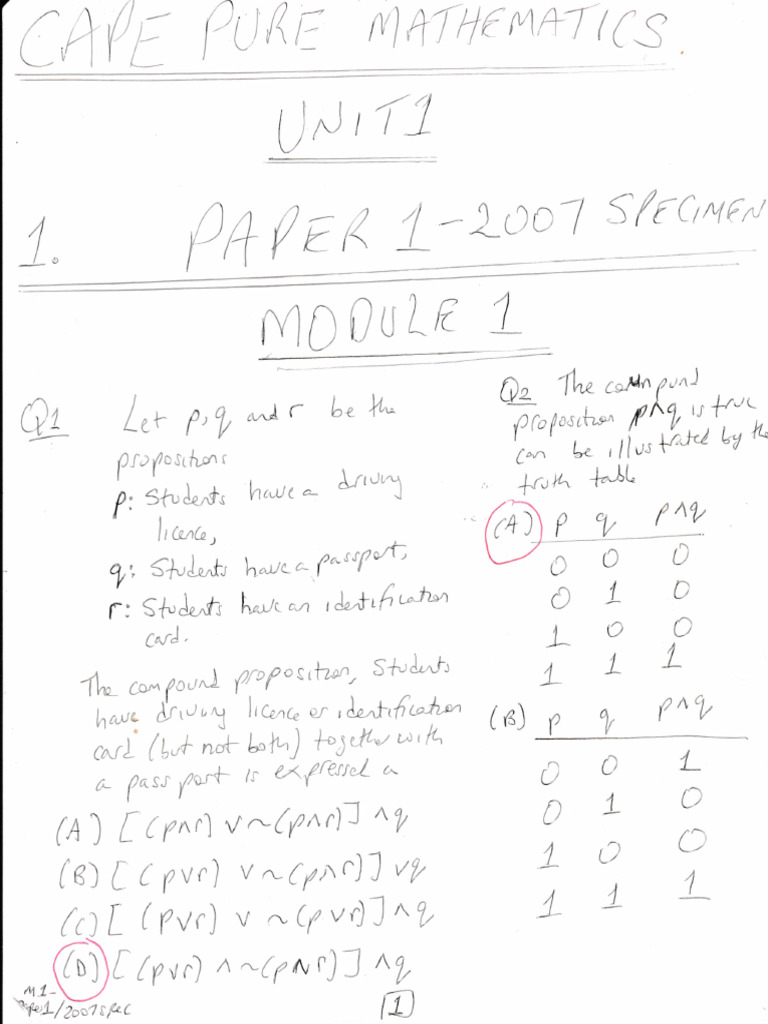 CAPE PURE MATHEMATICS
UNIT 1
1. PAPER 1 - 2007 SPECIMEN
MODULE 1
Q1 Let p, q and r be the
propositions
p: Students have a driving
licence,
q: Students have a passport,
r: Students have an identification
card.
The compound proposition, Students
have driving licence or identification
card (but not both) together with
a passport is expressed a
(A) [(p∧r) ∨ ~(p∧r)] ∧q
(B) [(p∨r) ∨ ~(p∧r)] ∨q
(C) [(p∨r) ∨ ~(p∨r)] ∧q
(D) [(p∨r) ∧ ~(p∧r)] ∧q
Q2 The compound
proposition p∧q is true
can be illustrated by the
truth table
(A) p q p∧q
0 0 0
0 1 0
1 0 0
1 1 1
(B) p q p∧q
0 0 1
0 1 0
1 0 0
1 1 1
M1-
Paper1/2007spec
1